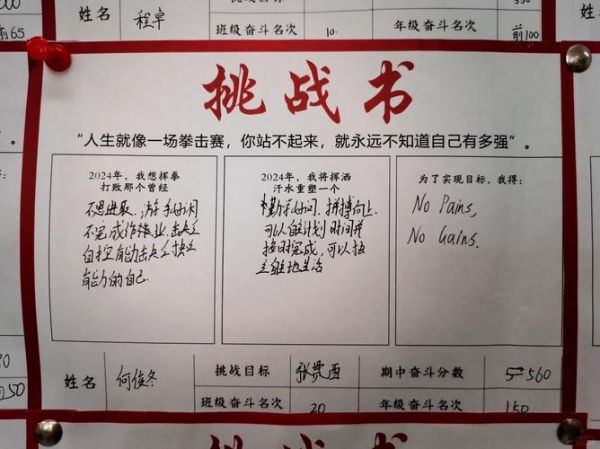 姓名 程卓
班级奋斗名次 10. 年级奋斗名次 前100
挑战书
“人生就像一场拳击赛，你站不起来，就永远不知道自己有多强”。
2024年，我想挥拳
打败那个曾经
不思进取、游手好闲
不完成作业、缺乏
自控能力缺乏独立
能力的自己
2024年，我将挥洒
汗水重塑一个
勤利时间、拼搏向上
可以自律计划时间并
按时完成，可以独
立自主地生活
为了实现目标，我得：
No Pains,
No Gains.
姓名 何俊冬 挑战目标 期中奋斗分数 560
班级奋斗名次 20 年级奋斗名次 150